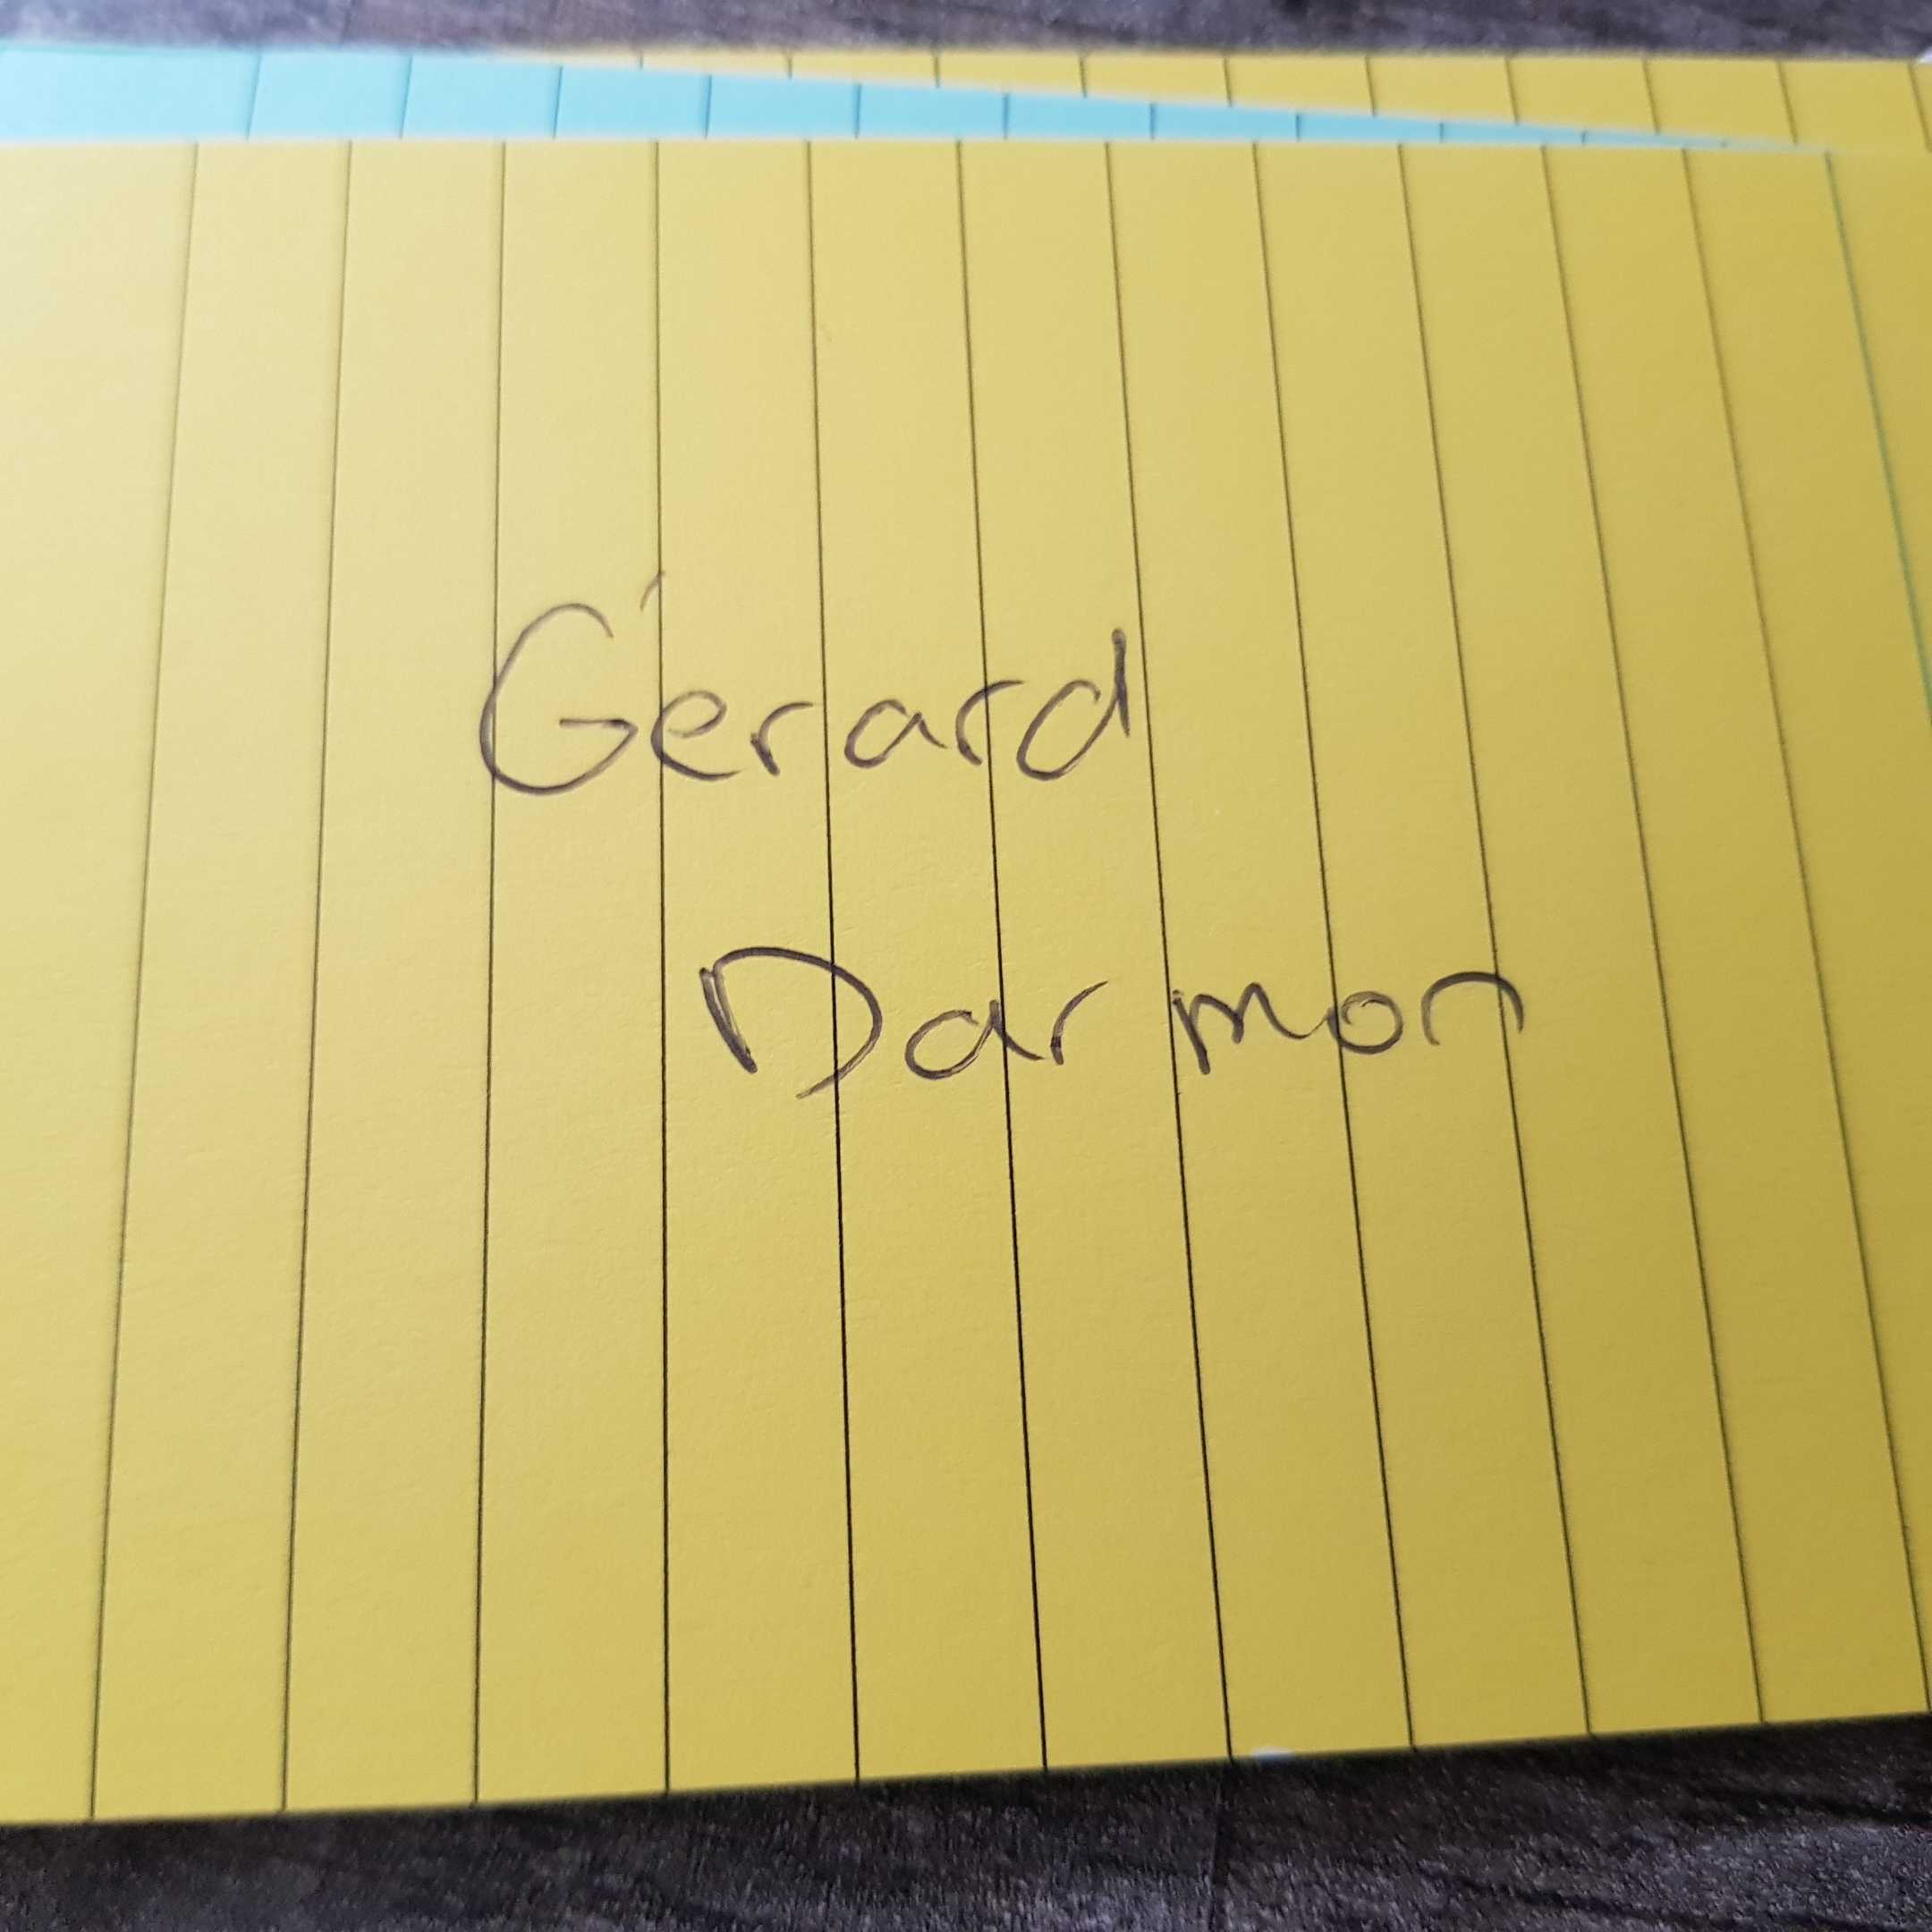 Gérard
Darmon